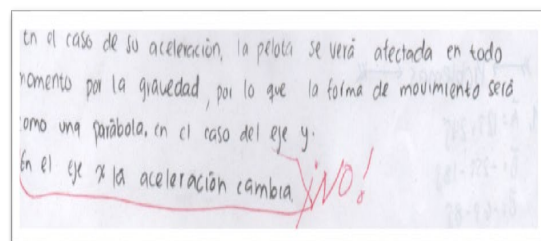 En el caso de su aceleración, la pelota se verá afectada en todo
momento por la gravedad, por lo que la forma de movimiento será
como una parábola, en el caso del eje y.
En el eje x la aceleración cambia. ¡NO!